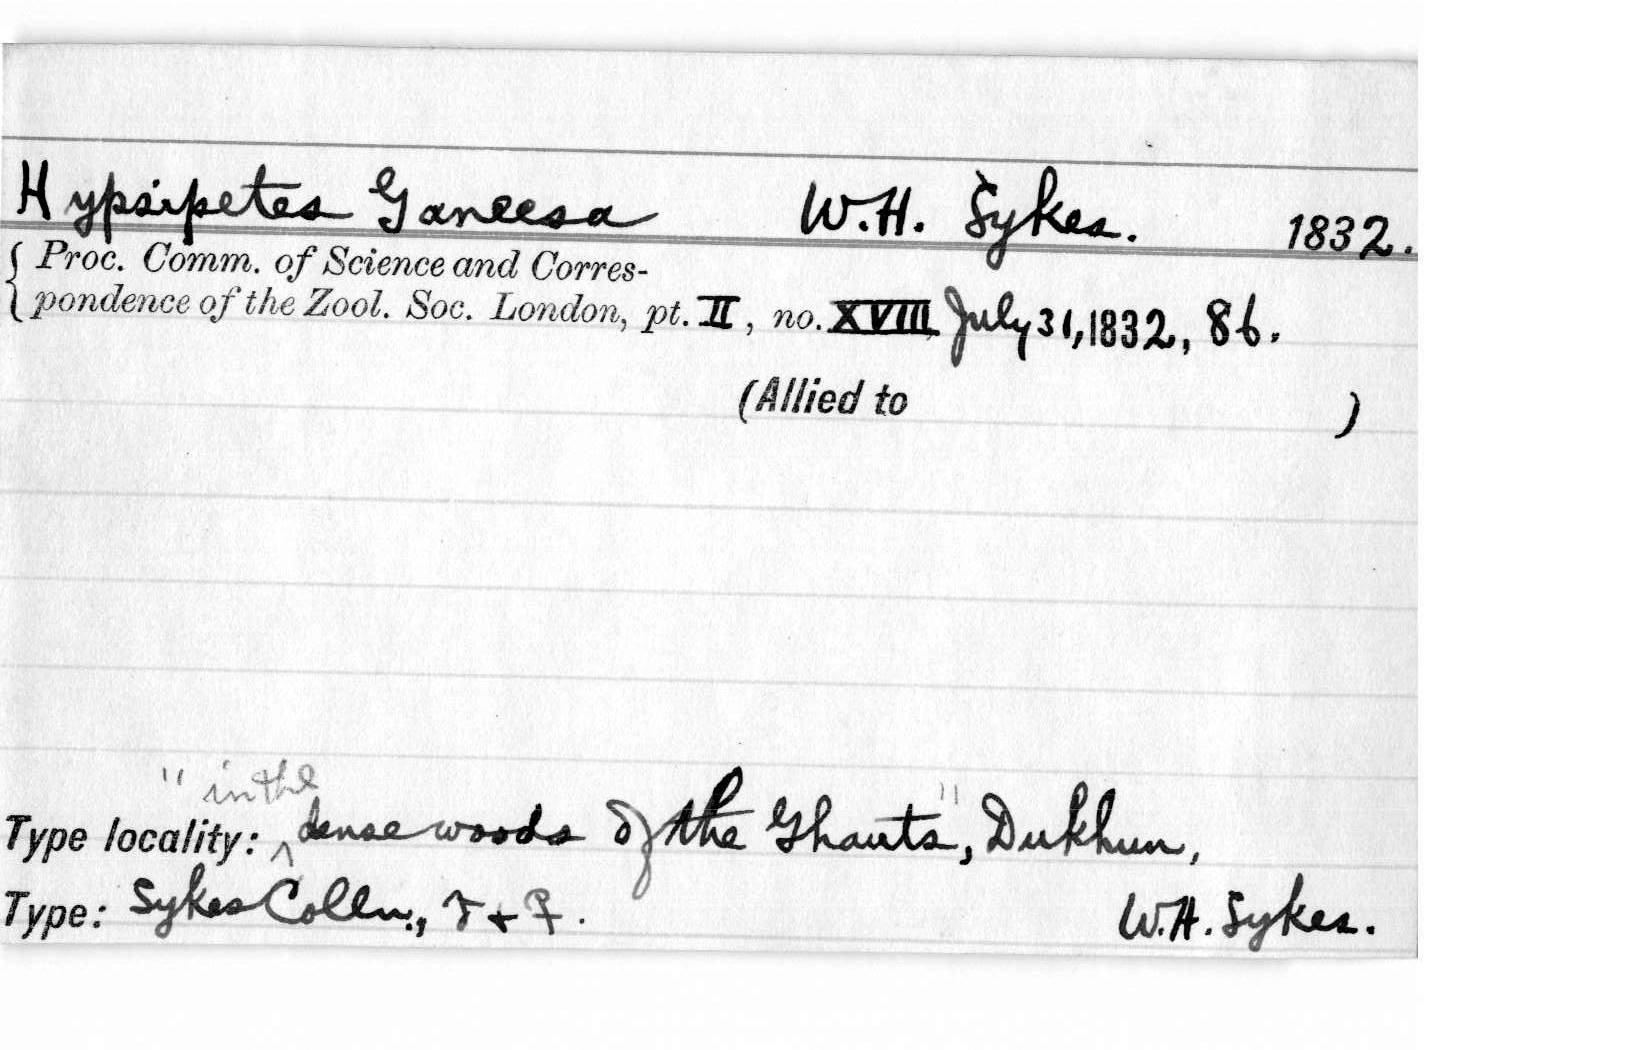 Hypsipetes Ganeesa W.H. Sykes. 1832.
{ Proc. Comm. of Science and Corres-
pondence of the Zool. Soc. London, pt. II, no. XVIII, July 31, 1832, 86.
(Allied to )
Type locality: "in the dense woods of the Ghauts", Dukhun,
Type: Sykes Colln., ♂ + ♀. W.H. Sykes.